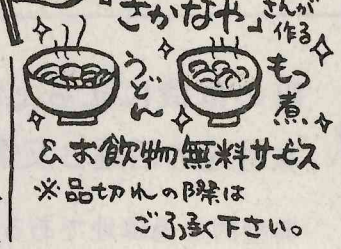 「さかなや」さんが作る
うどん
もつ煮
&お飲物無料サービス
※品切れの際は
ご了承下さい。